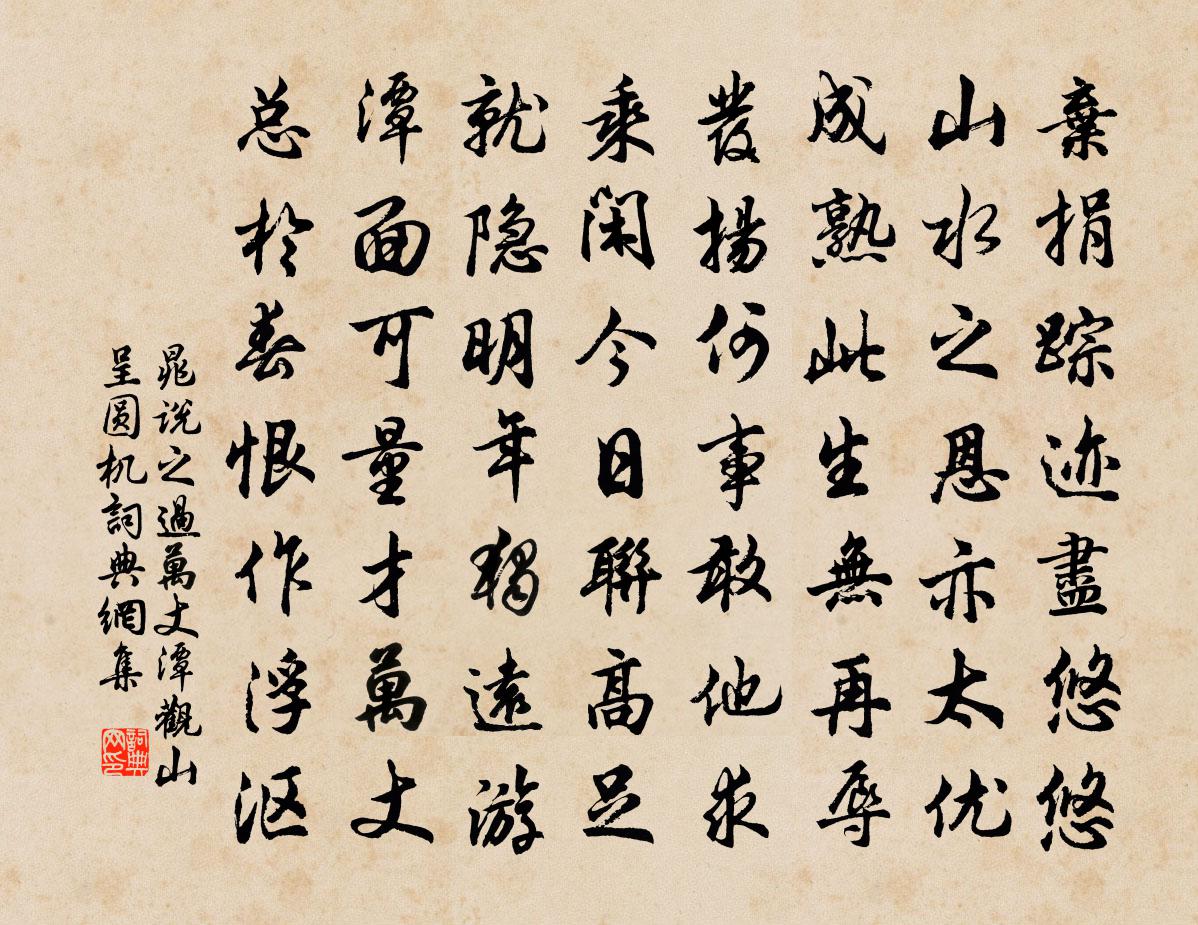 棄捐踪迹盡悠悠
山水之恩亦太优
成熟此生無再辱
發揚何事敢他求
乘閑今日聯高足
就隐明年独遠游
潭面可量才萬丈
总於春恨作浮沤
晁说之過萬丈潭觀山
呈圆机詞典網集
詞典网印